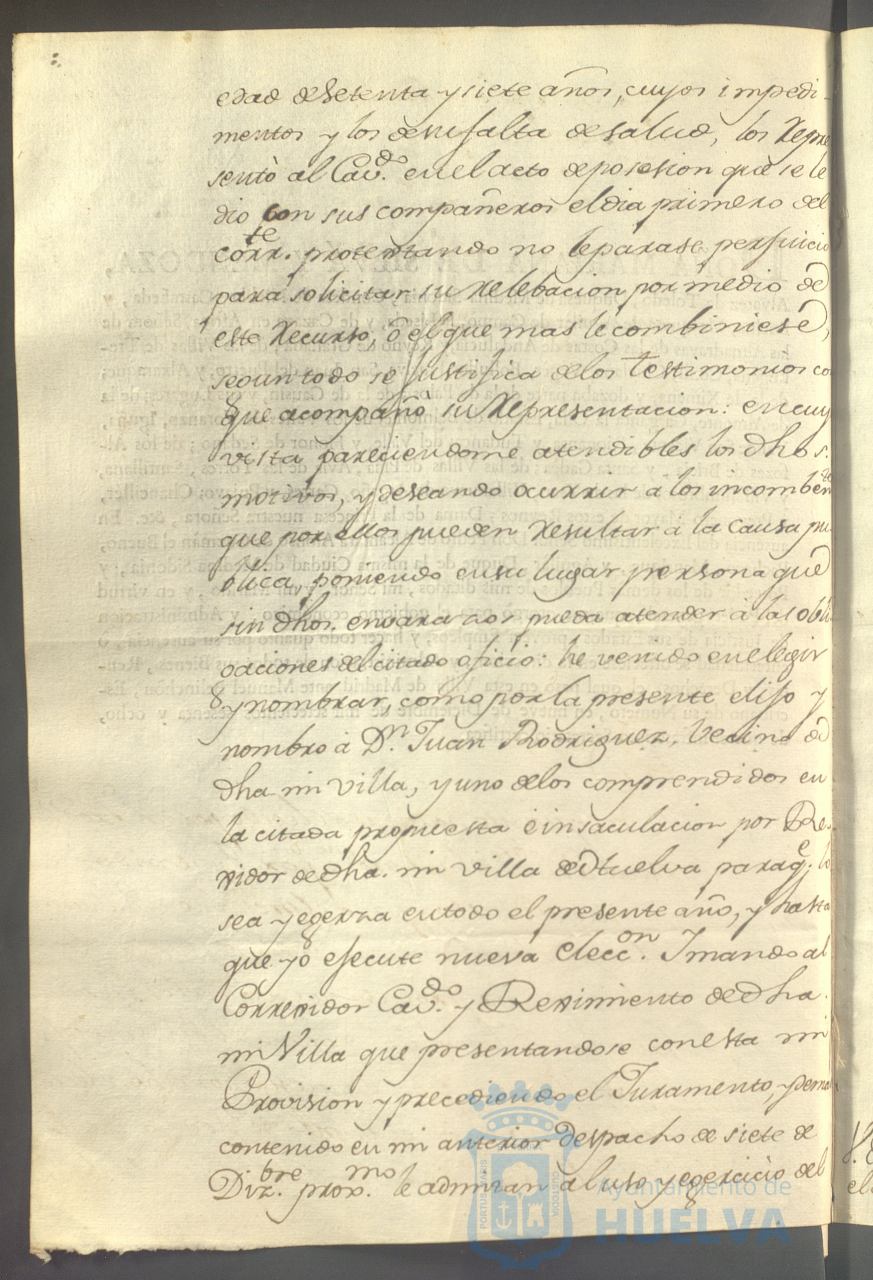 edad de setenta y siete años, cuyos impedi-
mentos y los de su falta de salud, los Repre
sentò al Cav.do en el acto de posesion que se le
dio con sus compañeros el dia primero del
corr.te protextando no le parase perjuicio
para solicitar su relebacion por medio de
este Recurso, ò el que mas le combiniese,
segun todo se justifica de los testimonios co
que acompañò su Representacion: en cuy
vista pareciendome atendibles los dhos.
motivos, y deseando ocurrir à los incombenten
que por ellos pueden resultar à la causa pu
blica, poniendo en su lugar persona que
sin dhos. envarazos pueda atender à las obli
gaciones del citado oficio: he venido en elegir
y nombrar, como por la presente elijo y
nombro à Dn. Juan Rodriguez, Vecino de
dha mi villa, y uno de los comprendidos en
la citada propuesta è insaculacion por Re-
gidor de dha. mi villa de Huelva para q.e lo
sea y egerza en todo el presente año, y hasta
que yo ejecute nueva elecc.on Y mando al
Corregidor Cav.do y Regimiento de dha.
mi Villa que presentandose con esta mi
Provision y precediendo el Juramento, y dema
contenido en mi anterior despacho de siete de
Diz.bre prox.mo le admitan al uso y egercicio del
Ayuntamiento de
HUELVA